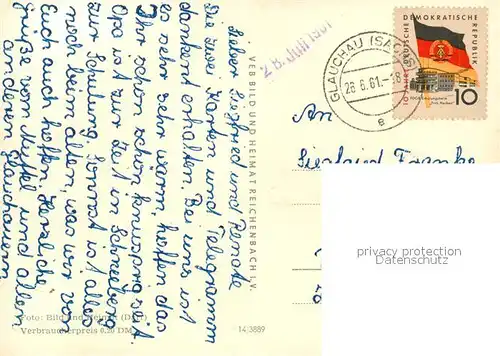 Lieber Siegfried und Renate
Die zwei Karten und Telegramm
dankend erhalten. Bei uns ist
es sehr sehr warm, hoffen das
Ihr schön schön knusprig seit.
Opa ist zur Zeit in Schneeberg
zur Schulung. Sonnst ist alles
noch beim alten, was wir von
Euch auch hoffen. Herzliche
grüße vom Muttel und allen
anderen Glauchauern
Foto: Bild und Heimat (Darr)
Verbraucherpreis 0,20 DM
14/3889
VEB BILD UND HEIMAT REICHENBACH I. V.
28. JUNI 1961
GLAUCHAU (SACHS)
28.6.61.-18
a
10 JAHRE DEUTSCHE DEMOKRATISCHE REPUBLIK
10
An
Siegfried Franke
privacy protection
Datenschutz